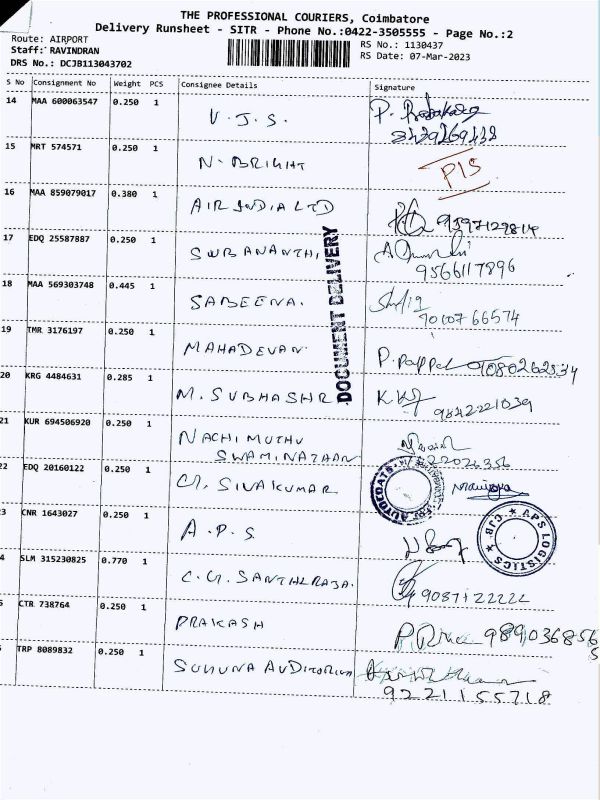 THE PROFESSIONAL COURIERS, Coimbatore
Delivery Runsheet - SITR - Phone No.:0422-3505555 - Page No.:2
Route: AIRPORT
Staff: RAVINDRAN
DRS No.: DCJB113043702
RS No.: 1130437
RS Date: 07-Mar-2023
S No Consignment No Weight PCS Consignee Details Signature
14 MAA 600063547 0.250 1 V.J.S.
15 MRT 574571 0.250 1 N. BRIGHT PIS
16 MAA 859079017 0.380 1 AIR INDIA LTD 9597129814
17 EDQ 25587887 0.250 1 SUBANANTHI 9566117896
18 MAA 569303748 0.445 1 SABEENA. 7010766574
19 TMR 3176197 0.250 1 MAHADEVAN 9080262534
20 KRG 4484631 0.285 1 M. SUBHASHR 9842221039
21 KUR 694506920 0.250 1 NACHIMUTHU
SWAMINATHAN
22 EDQ 20160122 0.250 1 G. SIVAKUMAR
3 CNR 1643027 0.250 1 A.P.S
4 SLM 315230825 0.770 1 C.G. SANTHLRAJA. 9087122222
5 CTR 738764 0.250 1 PRAKASH 9890368565
TRP 8089832 0.250 1 SUGUNA AUDITORIUM
9221155718
DOCUMENT DELIVERY
APS LOGISTICS
CJB